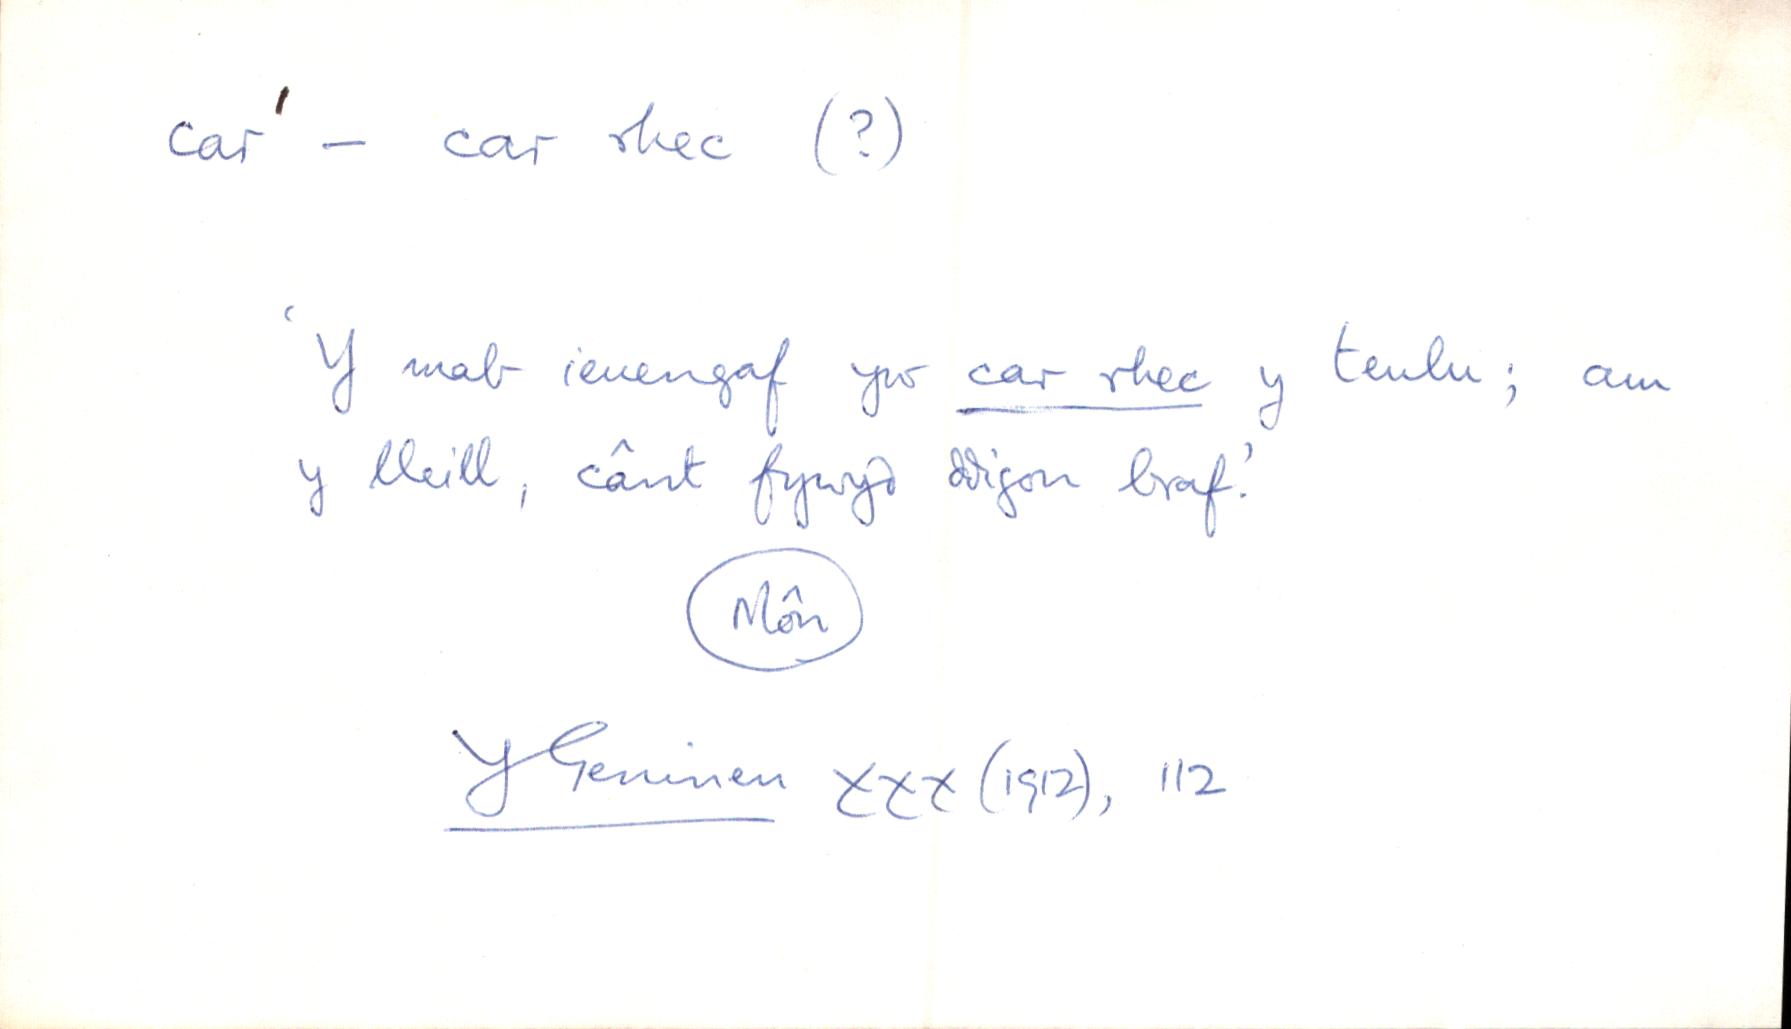 car' – car rhec (?)
'Y mab ieuengaf yw car rhec y teulu; am
y lleill, cânt fywyd ddigon braf.'
Môn
Y Geninen XXX (1912), 112